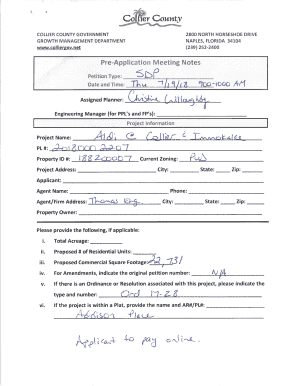 Collier County
COLLIER COUNTY GOVERNMENT 2800 NORTH HORSESHOE DRIVE
GROWTH MANAGEMENT DEPARTMENT NAPLES, FLORIDA 34104
www.colliergov.net (239) 252-2400
Pre-Application Meeting Notes
Petition Type: SDP
Date and Time: Thu 7/19/18 900-1000 AM
Assigned Planner: Christine Willoughby
Engineering Manager (for PPL's and FP's):
Project Information
Project Name: Aldi @ Collier & Immokalee
PL #: 20180002207
Property ID #: 188200007 Current Zoning: PUD
Project Address: City: State: Zip:
Applicant:
Agent Name: Phone:
Agent/Firm Address: Thomas King City: State: Zip:
Property Owner:
Please provide the following, if applicable:
i. Total Acreage:
ii. Proposed # of Residential Units:
iii. Proposed Commercial Square Footage: 22,731
iv. For Amendments, indicate the original petition number: N/A
v. If there is an Ordinance or Resolution associated with this project, please indicate the
type and number: Ord 17-28
vi. If the project is within a Plat, provide the name and AR#/PL#:
Addison Place
Applicant to pay online.